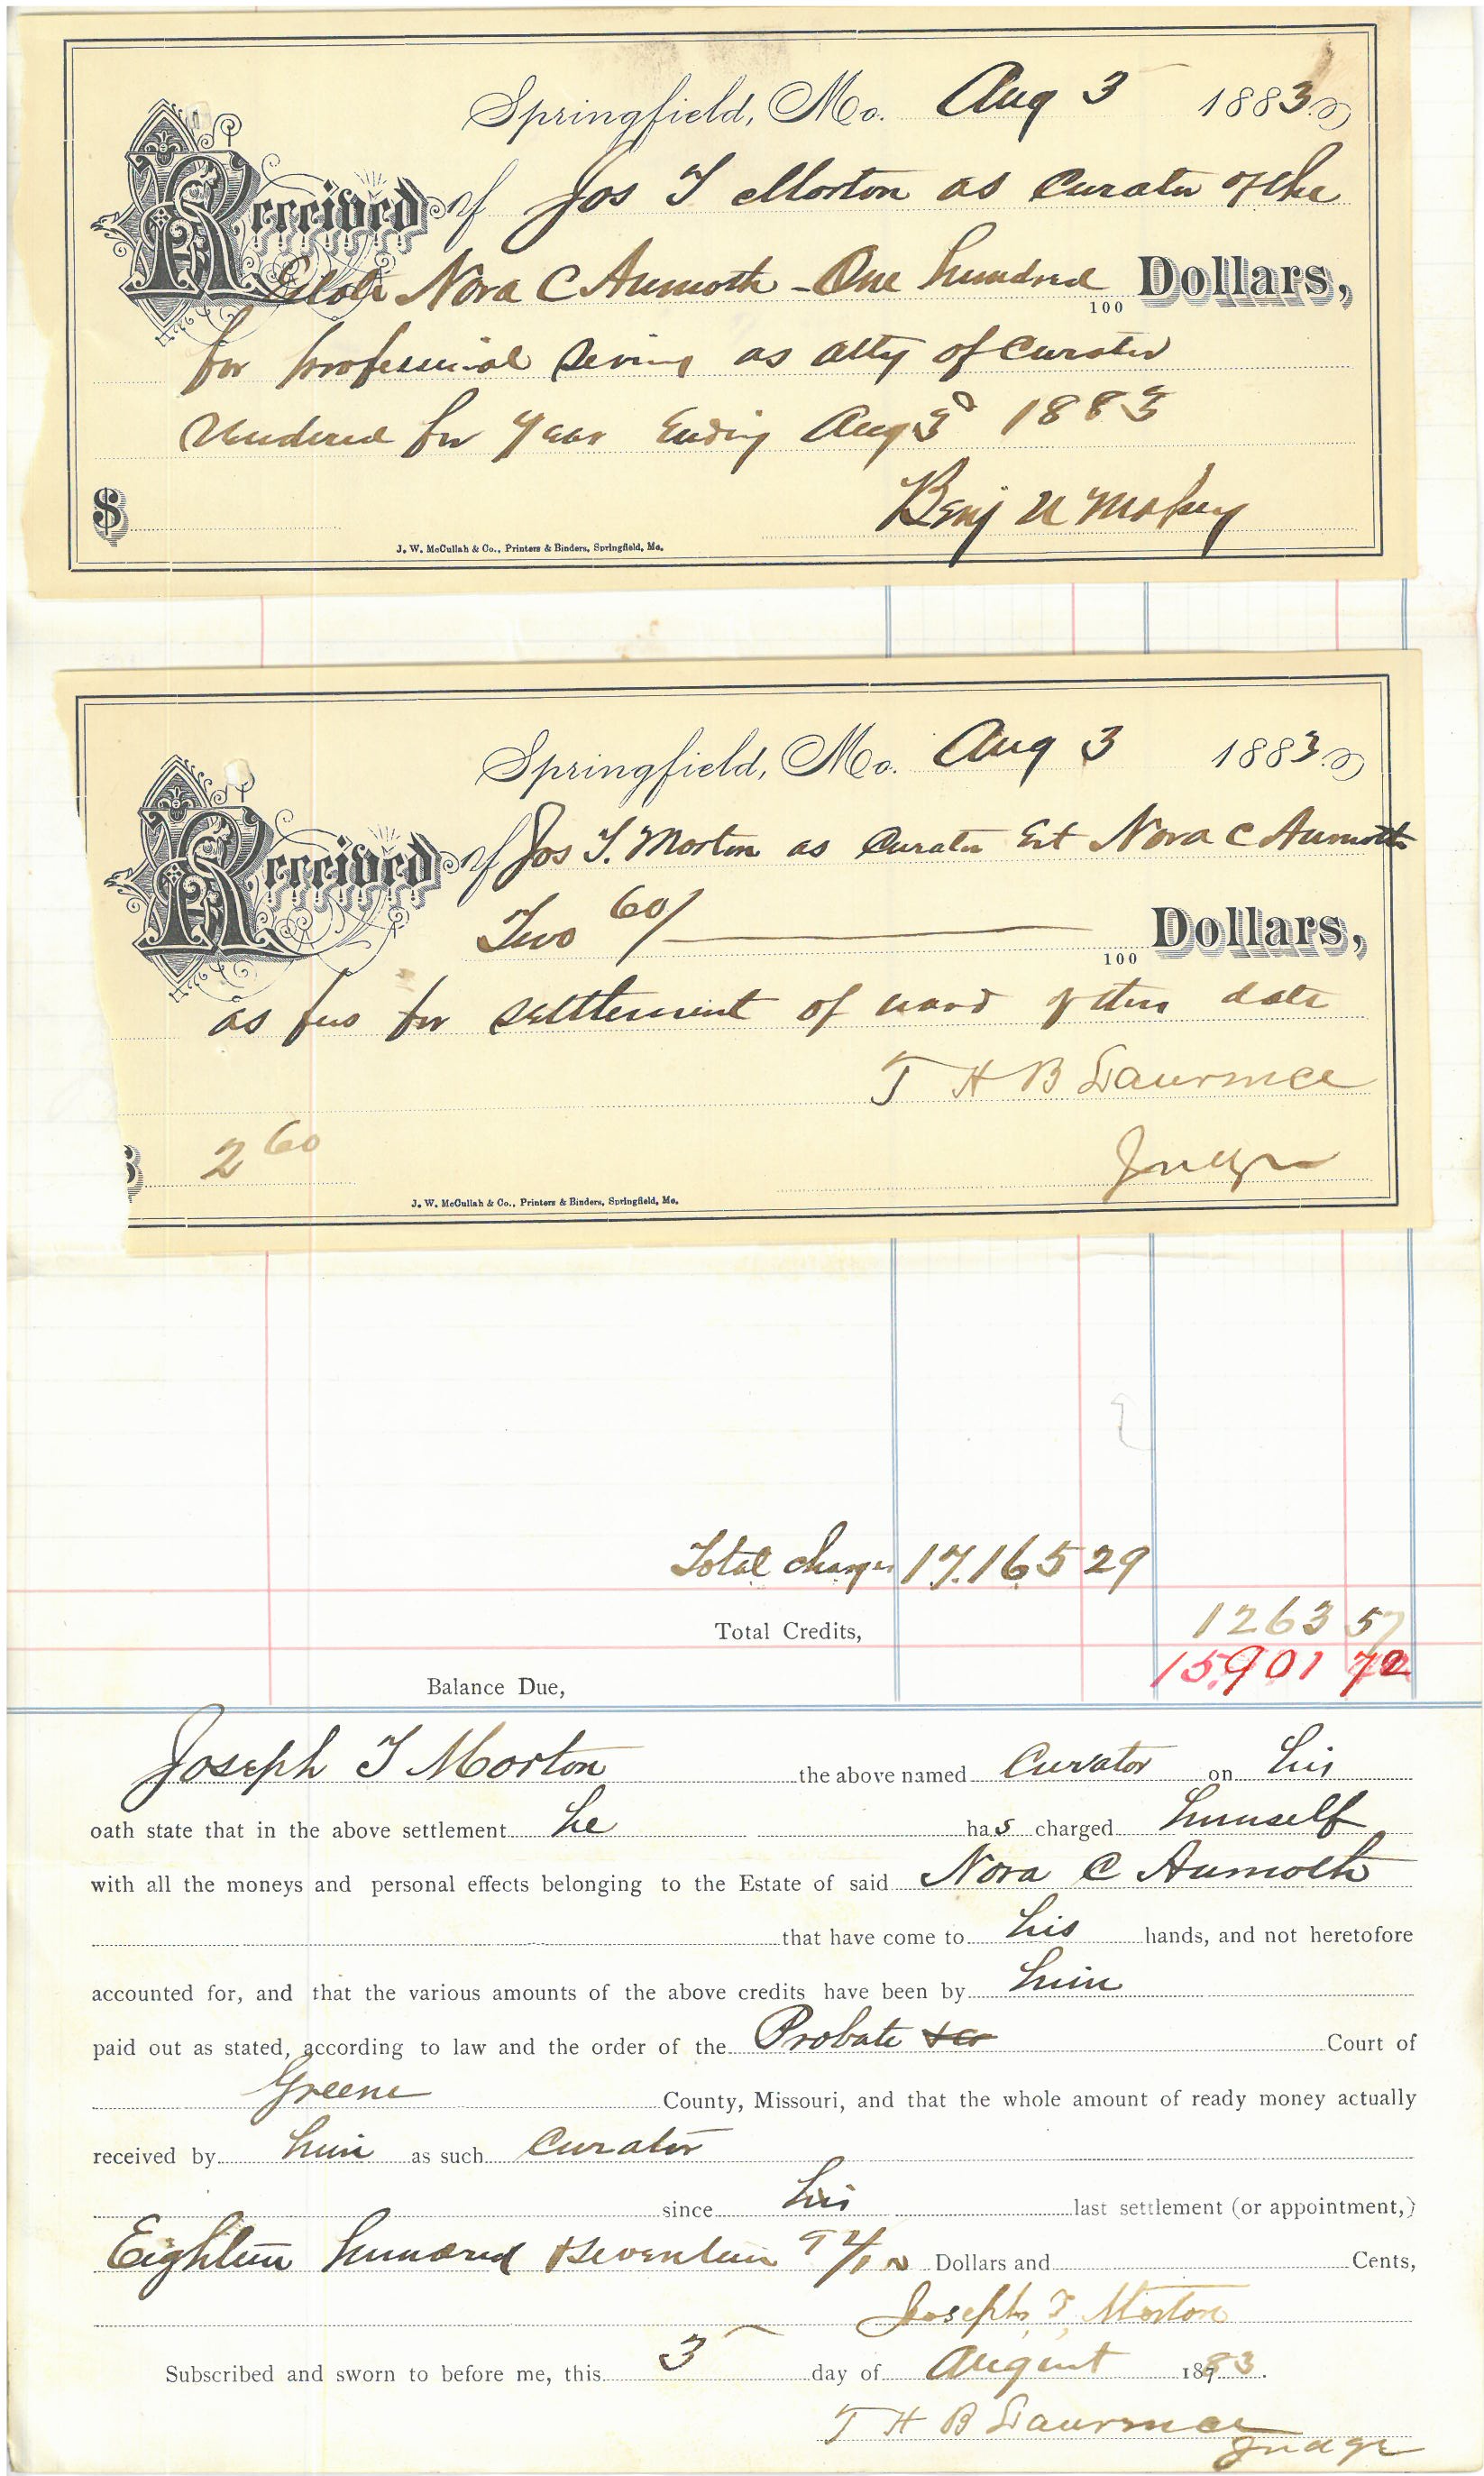 Springfield, Mo. Aug 3 1883
Received of Jos T Morton as Curator of the
Estate Nora C Aumoth - One hundred 100 Dollars,
for professional Servics as atty of Curator
Rendered for Year Ending Aug 3d 1883
$ Benj U
J. W. McCullah & Co., Printers & Binders, Springfield, Mo.
Springfield, Mo. Aug 3 1883
Received of Jos T. Morton as Curator Est Nora C Aumoth
Two 60/100 Dollars,
as fees for settlement of ward of this date
T H B Lawrence
$ 2 60 Judge
J. W. McCullah & Co., Printers & Binders, Springfield, Mo.
Total charges 17.165 29
Total Credits, 1263 57
15.901 72
Balance Due,
Joseph T Morton the above named Curator on his
oath state that in the above settlement he has charged himself
with all the moneys and personal effects belonging to the Estate of said Nora C Aumoth
that have come to his hands, and not heretofore
accounted for, and that the various amounts of the above credits have been by him
paid out as stated, according to law and the order of the Probate Court of
Greene County, Missouri, and that the whole amount of ready money actually
received by him as such Curator
since his last settlement (or appointment,)
Eighteen hundred & Seventeen 94/100 Dollars and Cents,
Joseph T. Morton
Subscribed and sworn to before me, this 3 day of August 1883.
T H B Lawrence
Judge